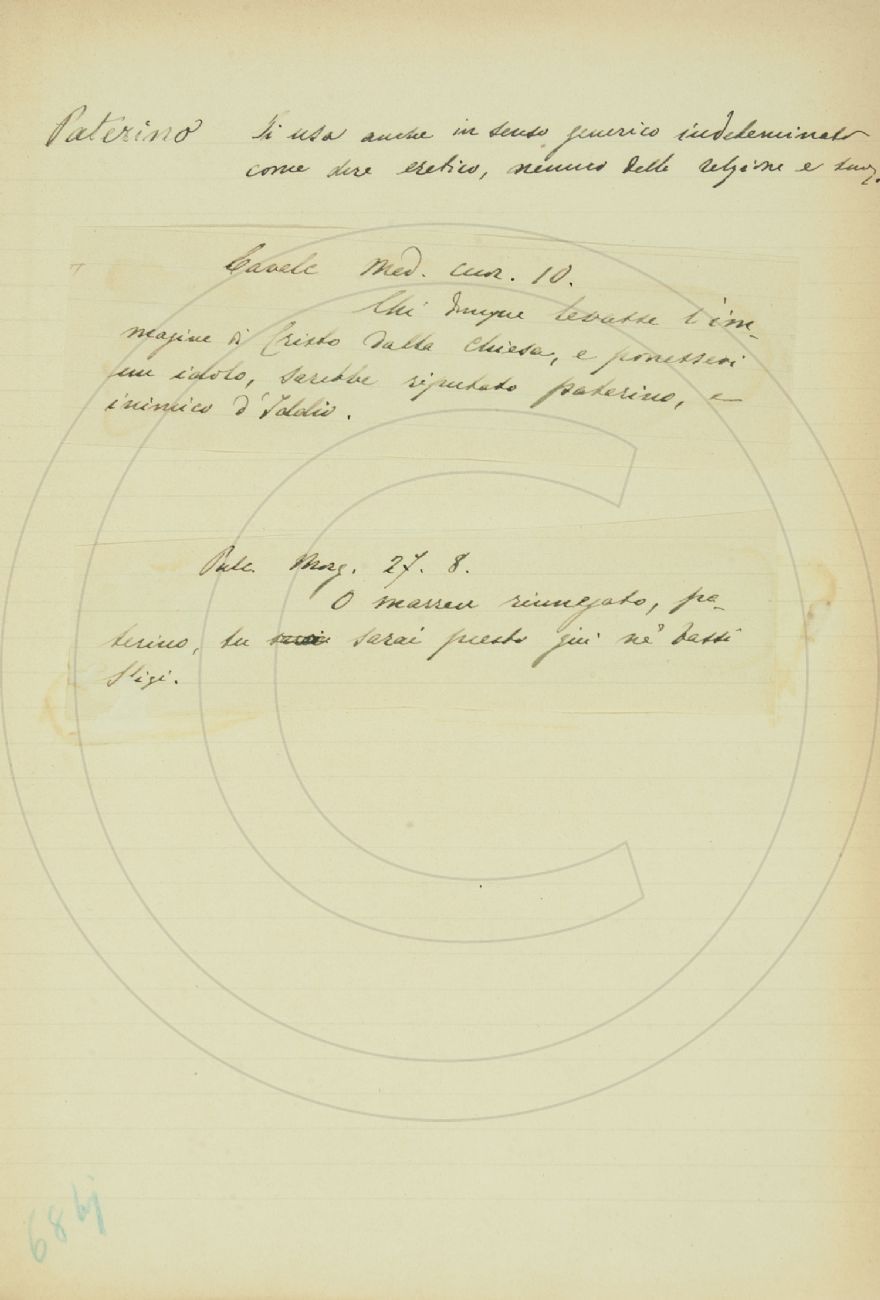 Paterino Si usa anche in senso generico indeterminato
come dire eretico, nemico della religione e
Cavalc Med. cuor. 10.
Chi dunque levasse l'im-
magine di Cristo dalla Chiesa, e ponessevi
un idolo, sarebbe riputato paterino, e
inimico d'Iddio.
Pulc. Morg. 27. 8.
O marran rinnegato, pa-
terino, tu sarai presto giù ne' bassi
Stigi.